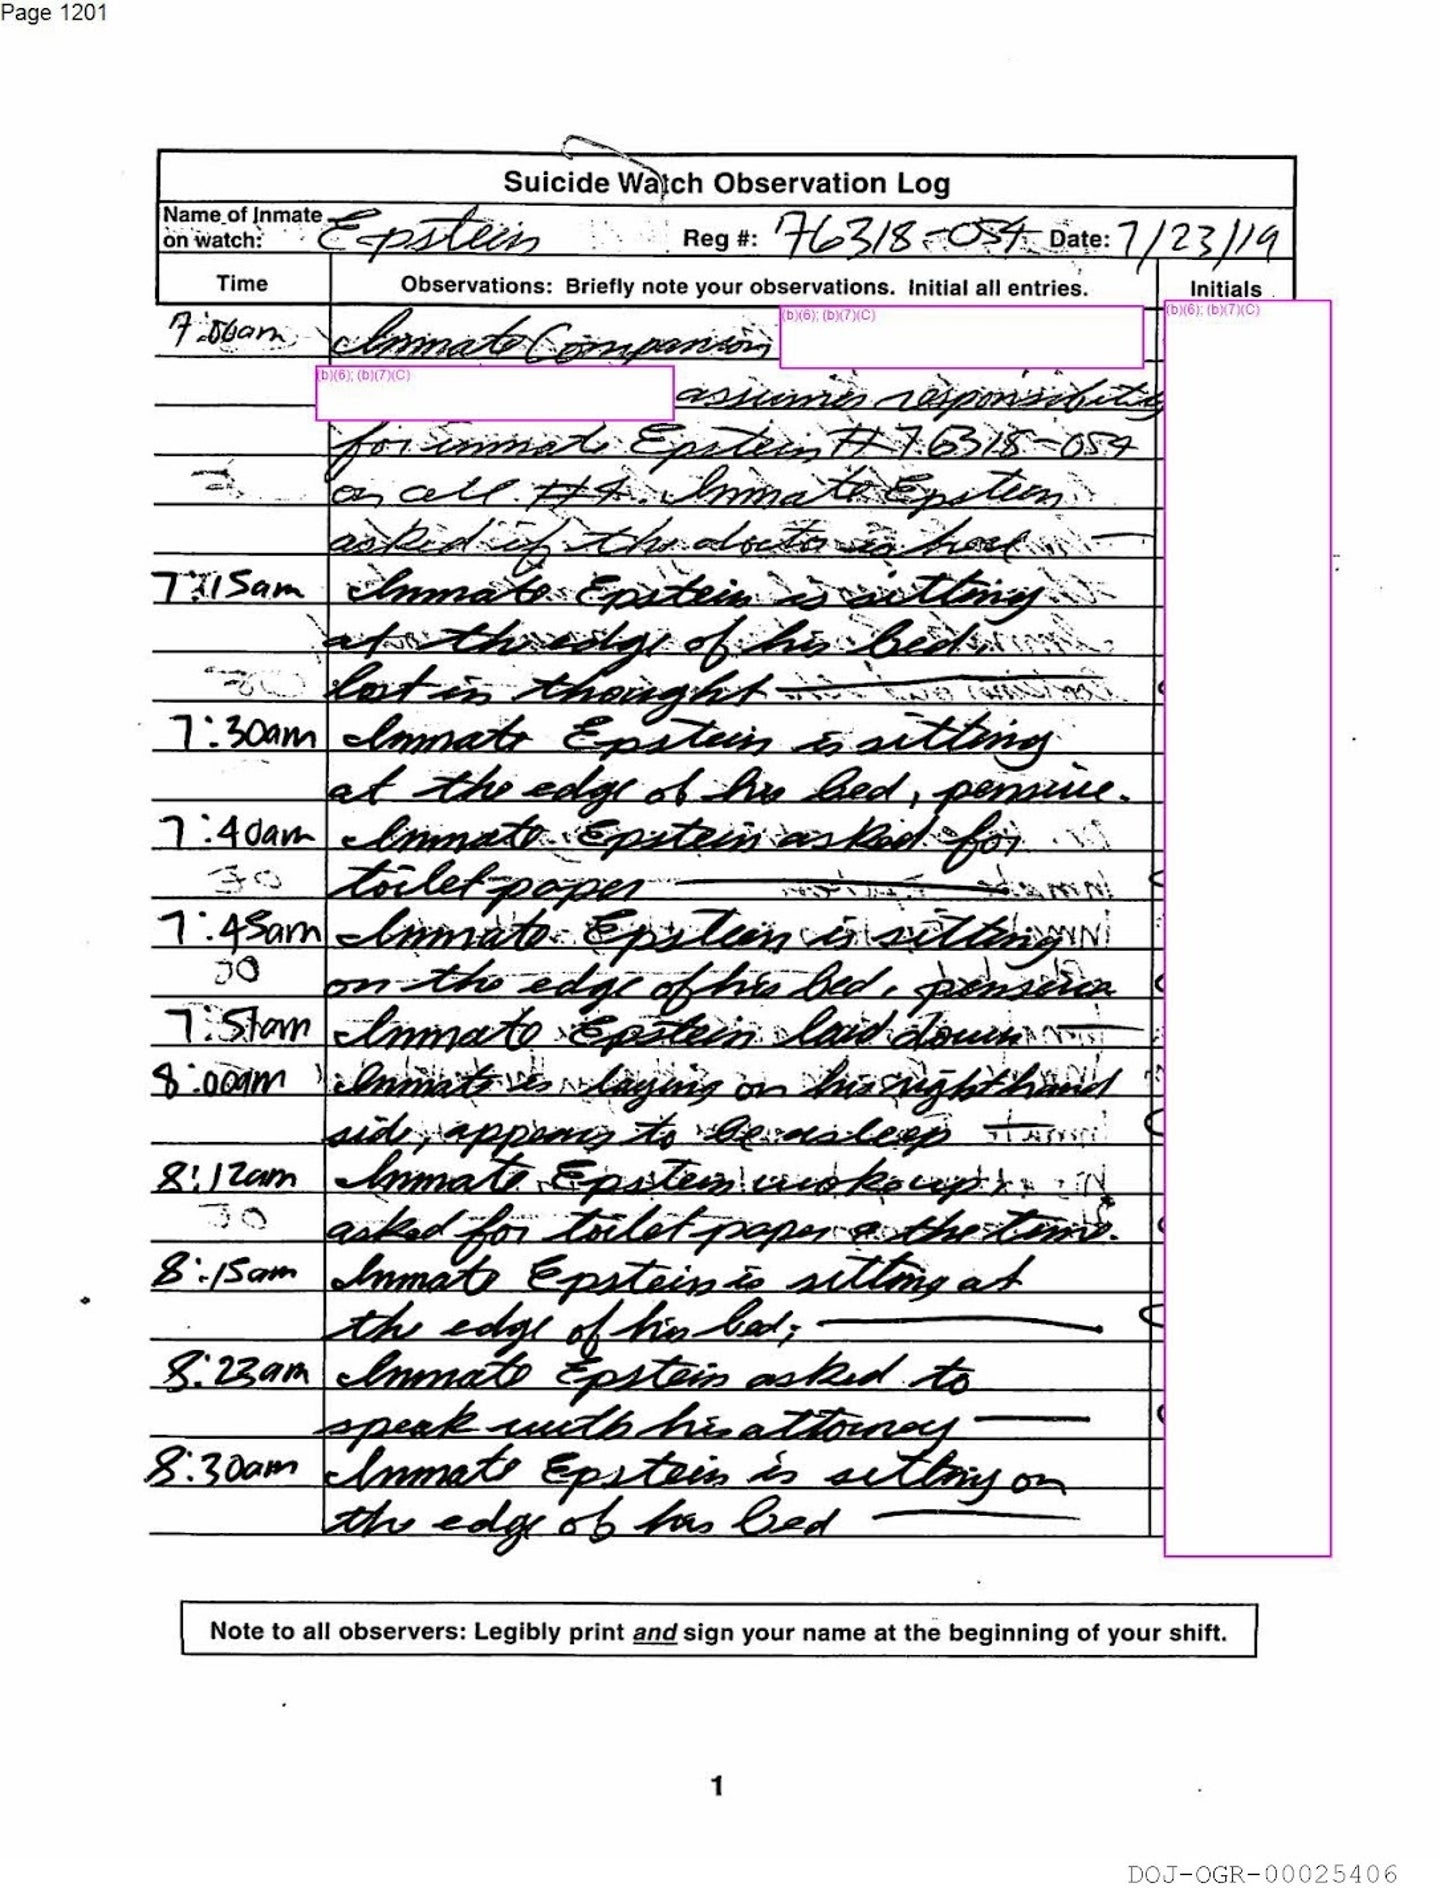 Page 1201
Suicide Watch Observation Log
Name of Inmate on watch: Epstein Reg #: 76318-054 Date: 7/23/19
Time Observations: Briefly note your observations. Initial all entries. Initials
7:00am Inmate Companion (b)(6); (b)(7)(C) (b)(6); (b)(7)(C)
(b)(6); (b)(7)(C) assumes responsibility
for inmate Epstein # 76318-054
on cell #4. Inmate Epstein
asked if the doctor is here
7:15am Inmate Epstein is sitting
at the edge of his bed.
lost in thought
7:30am Inmate Epstein is sitting
at the edge of his bed, pensive.
7:40am Inmate Epstein asked for
toilet paper
7:45am Inmate Epstein is sitting
on the edge of his bed,
7:51am Inmate Epstein laid down
8:00am Inmate is laying on his right hand
side, appears to be asleep
8:12am Inmate Epstein woke up
asked for toilet paper & the time.
8:15am Inmate Epstein is sitting at
the edge of his bed;
8:23am Inmate Epstein asked to
speak with his attorney
8:30am Inmate Epstein is sitting on
the edge of his bed
Note to all observers: Legibly print and sign your name at the beginning of your shift.
1
DOJ-OGR-00025406